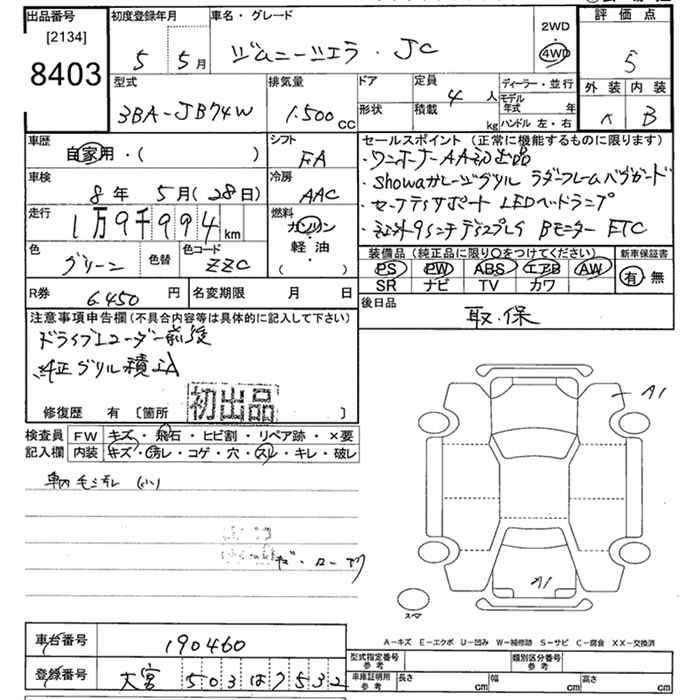 出品番号 初度登録年月 車名・グレード 評価点
[2134] 2WD
8403 5 5月 ジムニーシエラ・JC 4WD 5
型式 排気量 ドア 定員 ディーラー・並行 外装 内装
3BA-JB74W 1.500cc 4人 モデル年式 年 B
形状 積載 kg ハンドル 左・右
車歴 シフト セールスポイント(正常に機能するものに限ります)
自家用・( ) FA ・ワンオーナーAA初出品
車検 冷房 ・Showaガレージグリル ラダーフレームパワーガード
8年 5月(28日) AAC ・セーフティサポート LEDヘッドランプ
走行 燃料 ・社外9インチディスプレイ Bモニター ETC
1万9千994km ガソリン
軽・油
( )
色 色替 色コード 装備品(純正品に限り○をつけてください) 新車保証書
グリーン ZZC PS PW ABS エアB AW 有 無
SR ナビ TV カワ
R券 6.450円 名変期限 月 日 後日品
取・保
注意事項申告欄(不具合内容等は具体的に記入して下さい)
ドライブレコーダー前後
純正グリル積込A
修復歴 有〔箇所 〕
初出品
検査員 FW キズ・飛石・ヒビ割・リペア跡・×要
記入欄 内装 キズ・汚レ・コゲ・穴・スレ・キレ・破レ
A1
A1
スペマ
A-キズ E-エクボ U-凹み W-補修跡 S-サビ C-腐食 XX-交換済
車台番号 190460 型式指定番号 参考 類別区分番号 参考
登録番号 大宮 503は7532 車庫証明用 参考 長さ cm 幅 cm 高さ cm